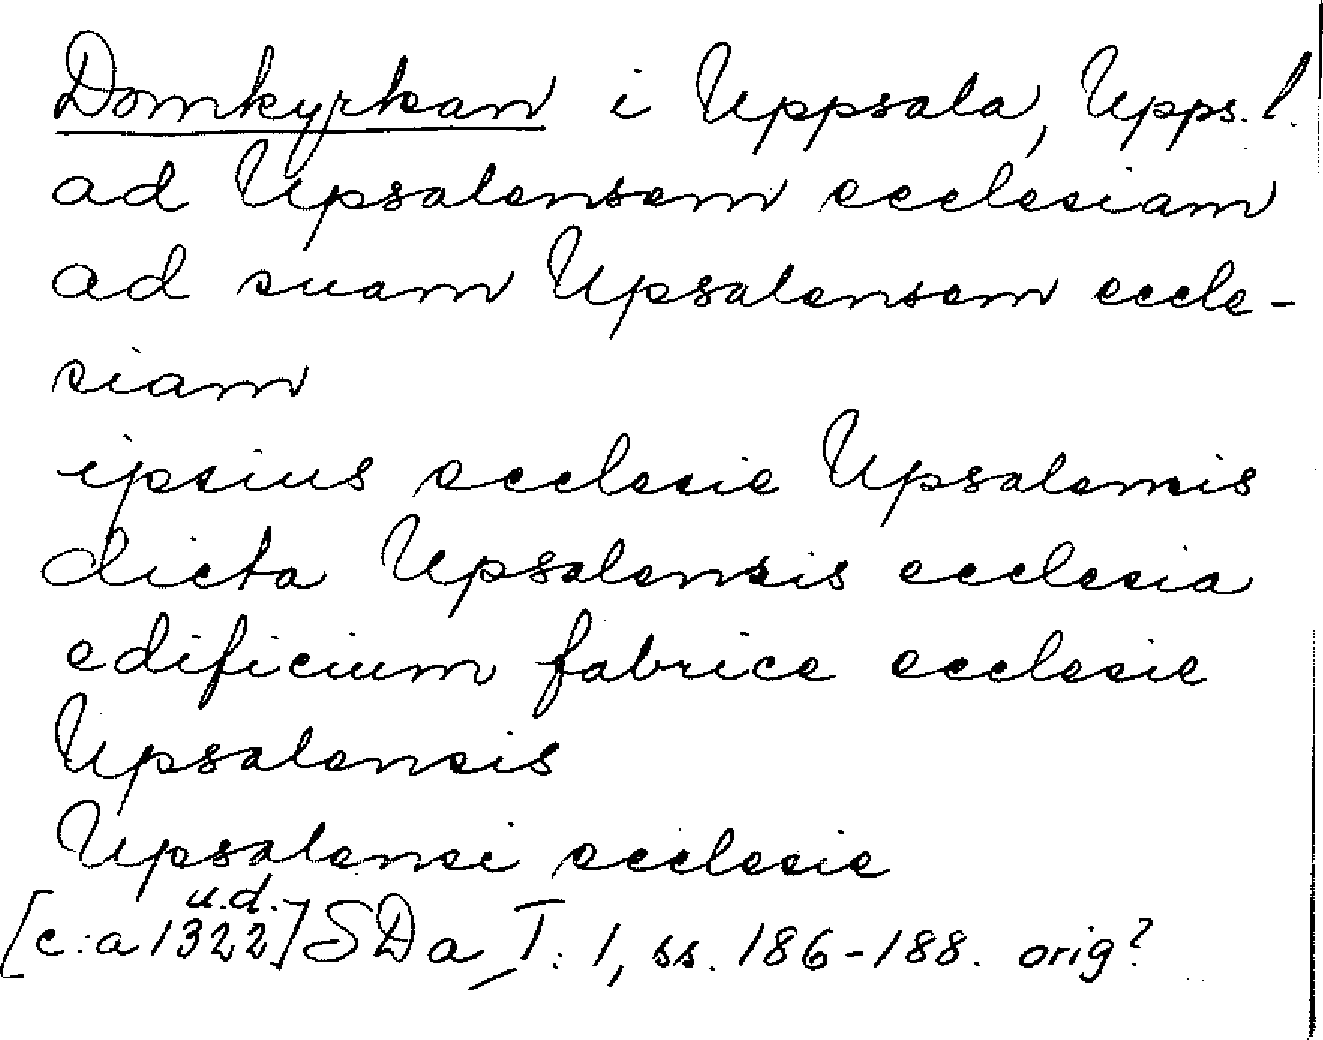 Domkyrkan i Uppsala, Upps. l.
ad Upsalensem ecclesiam
ad suam Upsalensem eccle-
siam
ipsius ecclesie Upsalensis
dicta Upsalensis ecclesia
edificium fabrice ecclesie
Upsalensis
Upsalensi ecclesie
u.d.
[c:a 1322] SDa, T. 1, ss. 186-188. orig?